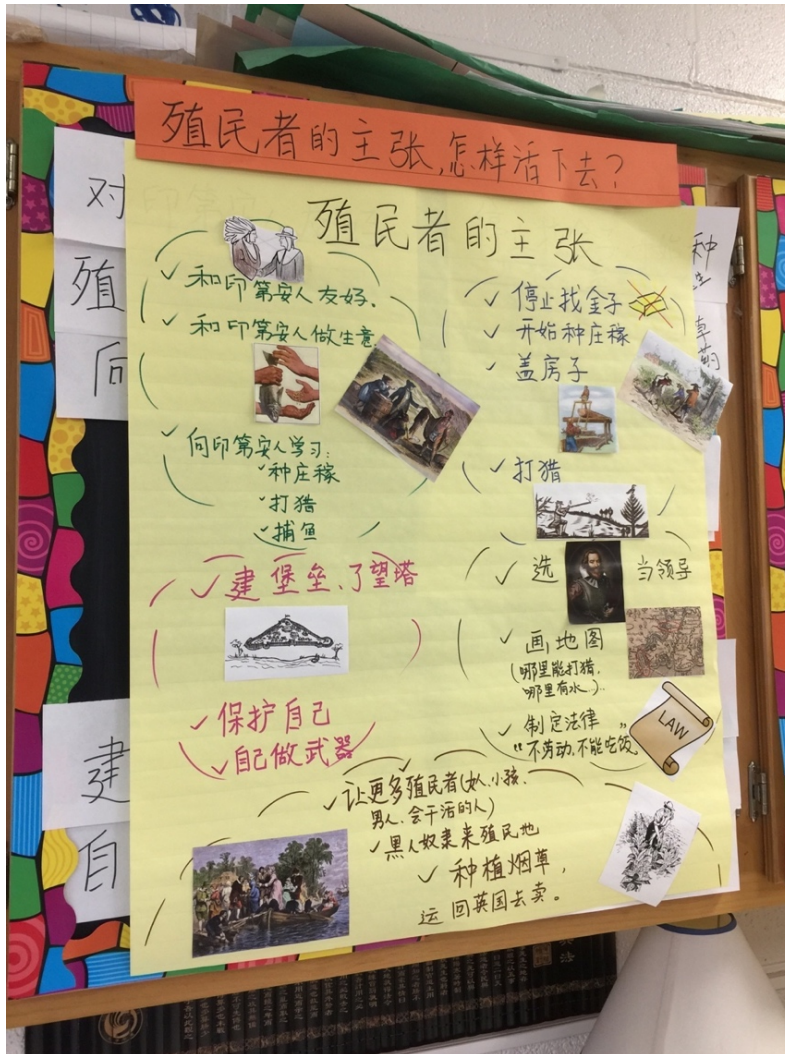 殖民者的主张,怎样活下去?
殖民者的主张
✓ 和印第安人友好.
✓ 和印第安人做生意
✓ 向印第安人学习:
✓ 种庄稼
✓ 打猎
✓ 捕鱼
✓ 建堡垒、了望塔
✓ 保护自己
✓ 自己做武器
✓ 停止找金子
✓ 开始种庄稼
✓ 盖房子
✓ 打猎
✓ 选 当领导
✓ 画地图
(哪里能打猎.
哪里有水.)
✓ 制定法律
"不劳动,不能吃饭"
LAW
✓ 让更多殖民者(女人.小孩.
男人.会干活的人)
✓ 黑人奴隶来殖民地
✓ 种植烟草,
运回英国去卖。
对
殖
向
建
自
种